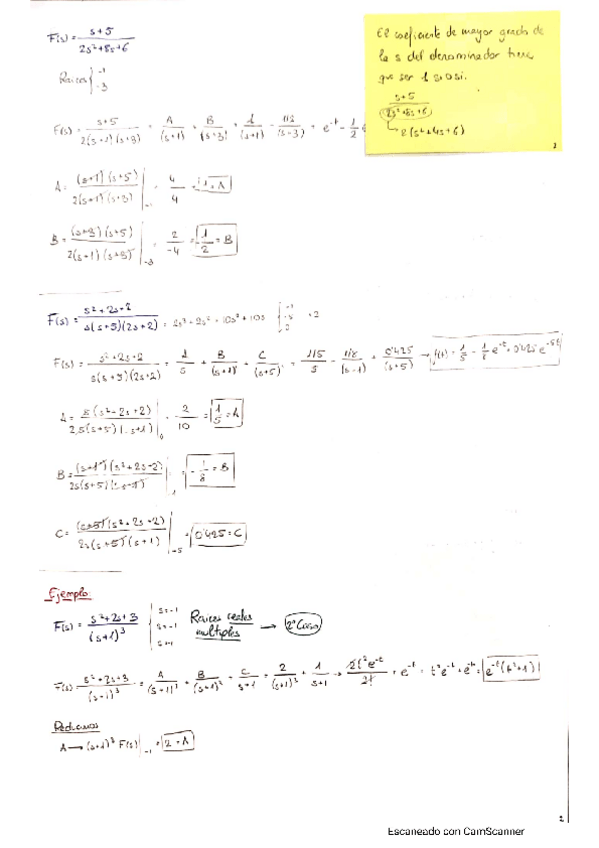 F(s) = s+5 / 2s²+8s+6
Raíces { -1
-3
El coeficiente de mayor grado de
la s del denominador tiene
que ser 1 sí o sí.
s+5 / 2s²+8s+6
2(s²+4s+6)
2
F(s) = s+5 / 2(s+1)(s+3) = A/(s+1) + B/(s+3) = 1/(s+1) - 1/2/(s-3) = e^-t - 1/2
A = (s+1)(s+5) / 2(s+1)(s+3) |-1 = 4/4 = 1 = A
B = (s+3)(s+5) / 2(s+1)(s+3) |-3 = 2/-4 = 1/2 = B
F(s) = s²+2s+2 / s(s+5)(2s+2) = 2s³+2s²+10s²+10s
F(s) = s²+2s+2 / s(s+5)(2s+2) = 1/s + B/(s+1) + C/(s+5) = 1/5/s - 1/8/(s-1) + 0'425/(s+5) → f(t) = 1/5 - 1/8 e^-t + 0'425 e^-5t
A = s(s²+2s+2) / 2s(s+5)(s+1) |0 = 2/10 = 1/5 = A
B = (s+1)(s²+2s+2) / 2s(s+5)(s+1) = -1/8 = B
C = (s+5)(s²+2s+2) / 2s(s+5)(s+1) |-5 = 0'425 = C
Ejemplo:
F(s) = s²+2s+3 / (s+1)³ { s=-1 s=-1 s=-1 Raíces reales múltiples → 2º Caso
F(s) = s²+2s+3 / (s+1)³ = A/(s+1)³ + B/(s+1)² + C/s+1 = 2/(s+1)³ + 1/s+1 → 2t²e^-t/2! + e^-t = t²e^-t + e^-t = e^-t(t²+1)
A → (s+1)³ F(s)|-1 = 2 = A
2
Escaneado con CamScanner